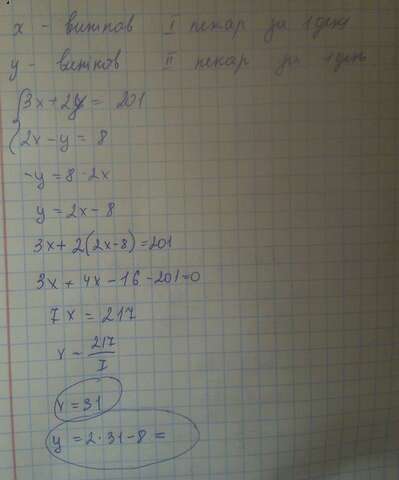 x - випков I пекар за 1 день
y - випков II пекар за 1 день
3x + 2y = 201
2x - y = 8
-y = 8 - 2x
y = 2x - 8
3x + 2(2x-8) = 201
3x + 4x - 16 - 201 = 0
7x = 217
x - 217/7
x = 31
y = 2·31 - 8 =